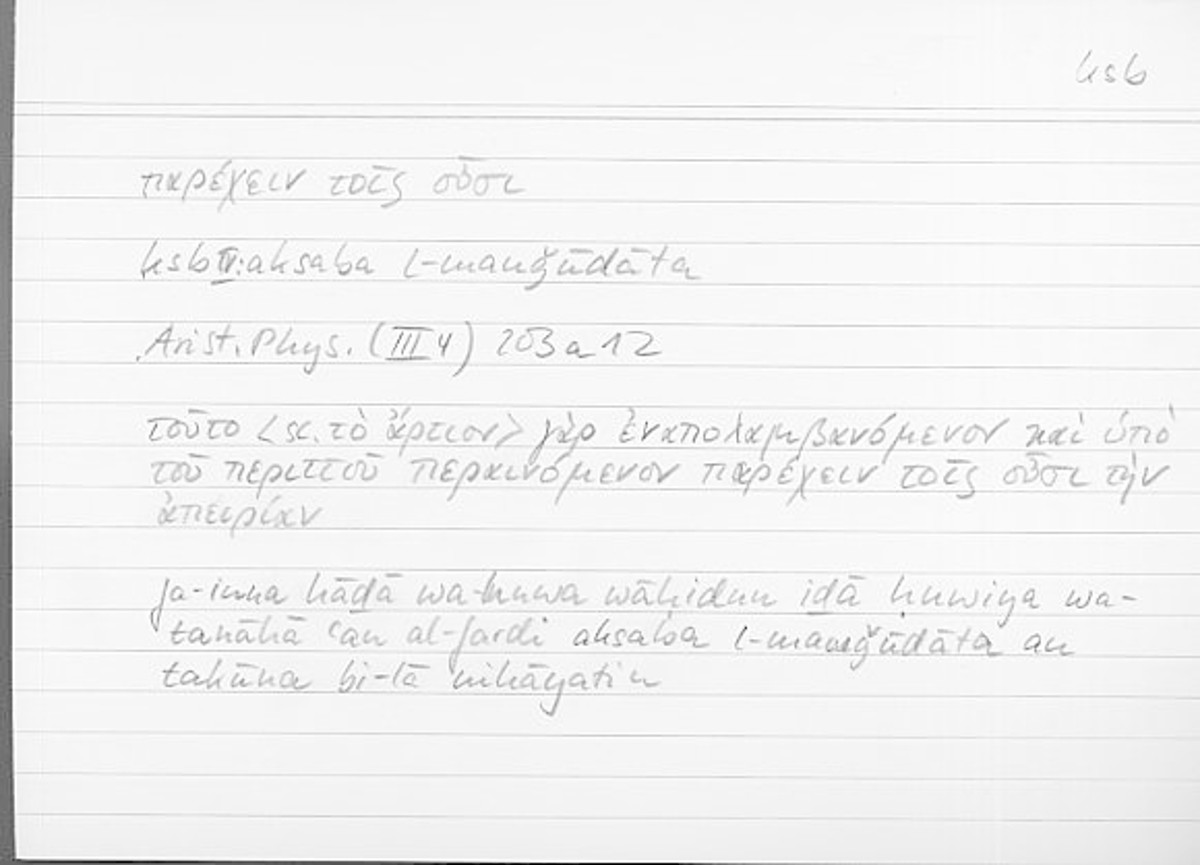 ksb
παρέχειν τοῖς οὖσι
ksb IV: aksaba l-mauǧūdāta
Arist. Phys. (III 4) 203 a 12
τοῦτο <sc. τὸ ἄρτιον> γὰρ ἐναπολαμβανόμενον καὶ ὑπὸ
τοῦ περιττοῦ περαινόμενον παρέχειν τοῖς οὖσι τὴν
ἀπειρίαν
fa-inna hāḏā wa-huwa wāḥidun iḏā ḥuwiya wa-
tanāhā ʿan al-fardi aksaba l-mauǧūdāta an
takūna bi-lā nihāyatin